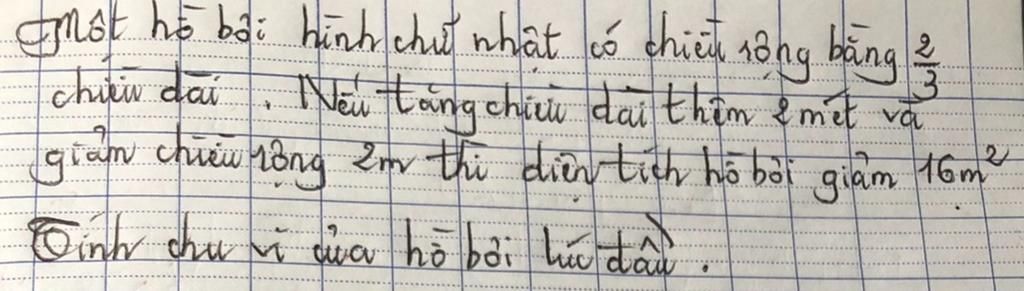 Một hồ bơi hình chữ nhật có chiều rộng bằng 2/3
chiều dài. Nếu tăng chiều dài thêm 2 mét và
giảm chiều rộng 2m thì diện tích hồ bơi giảm 16m²
Tính chu vi của hồ bơi lúc đầu.